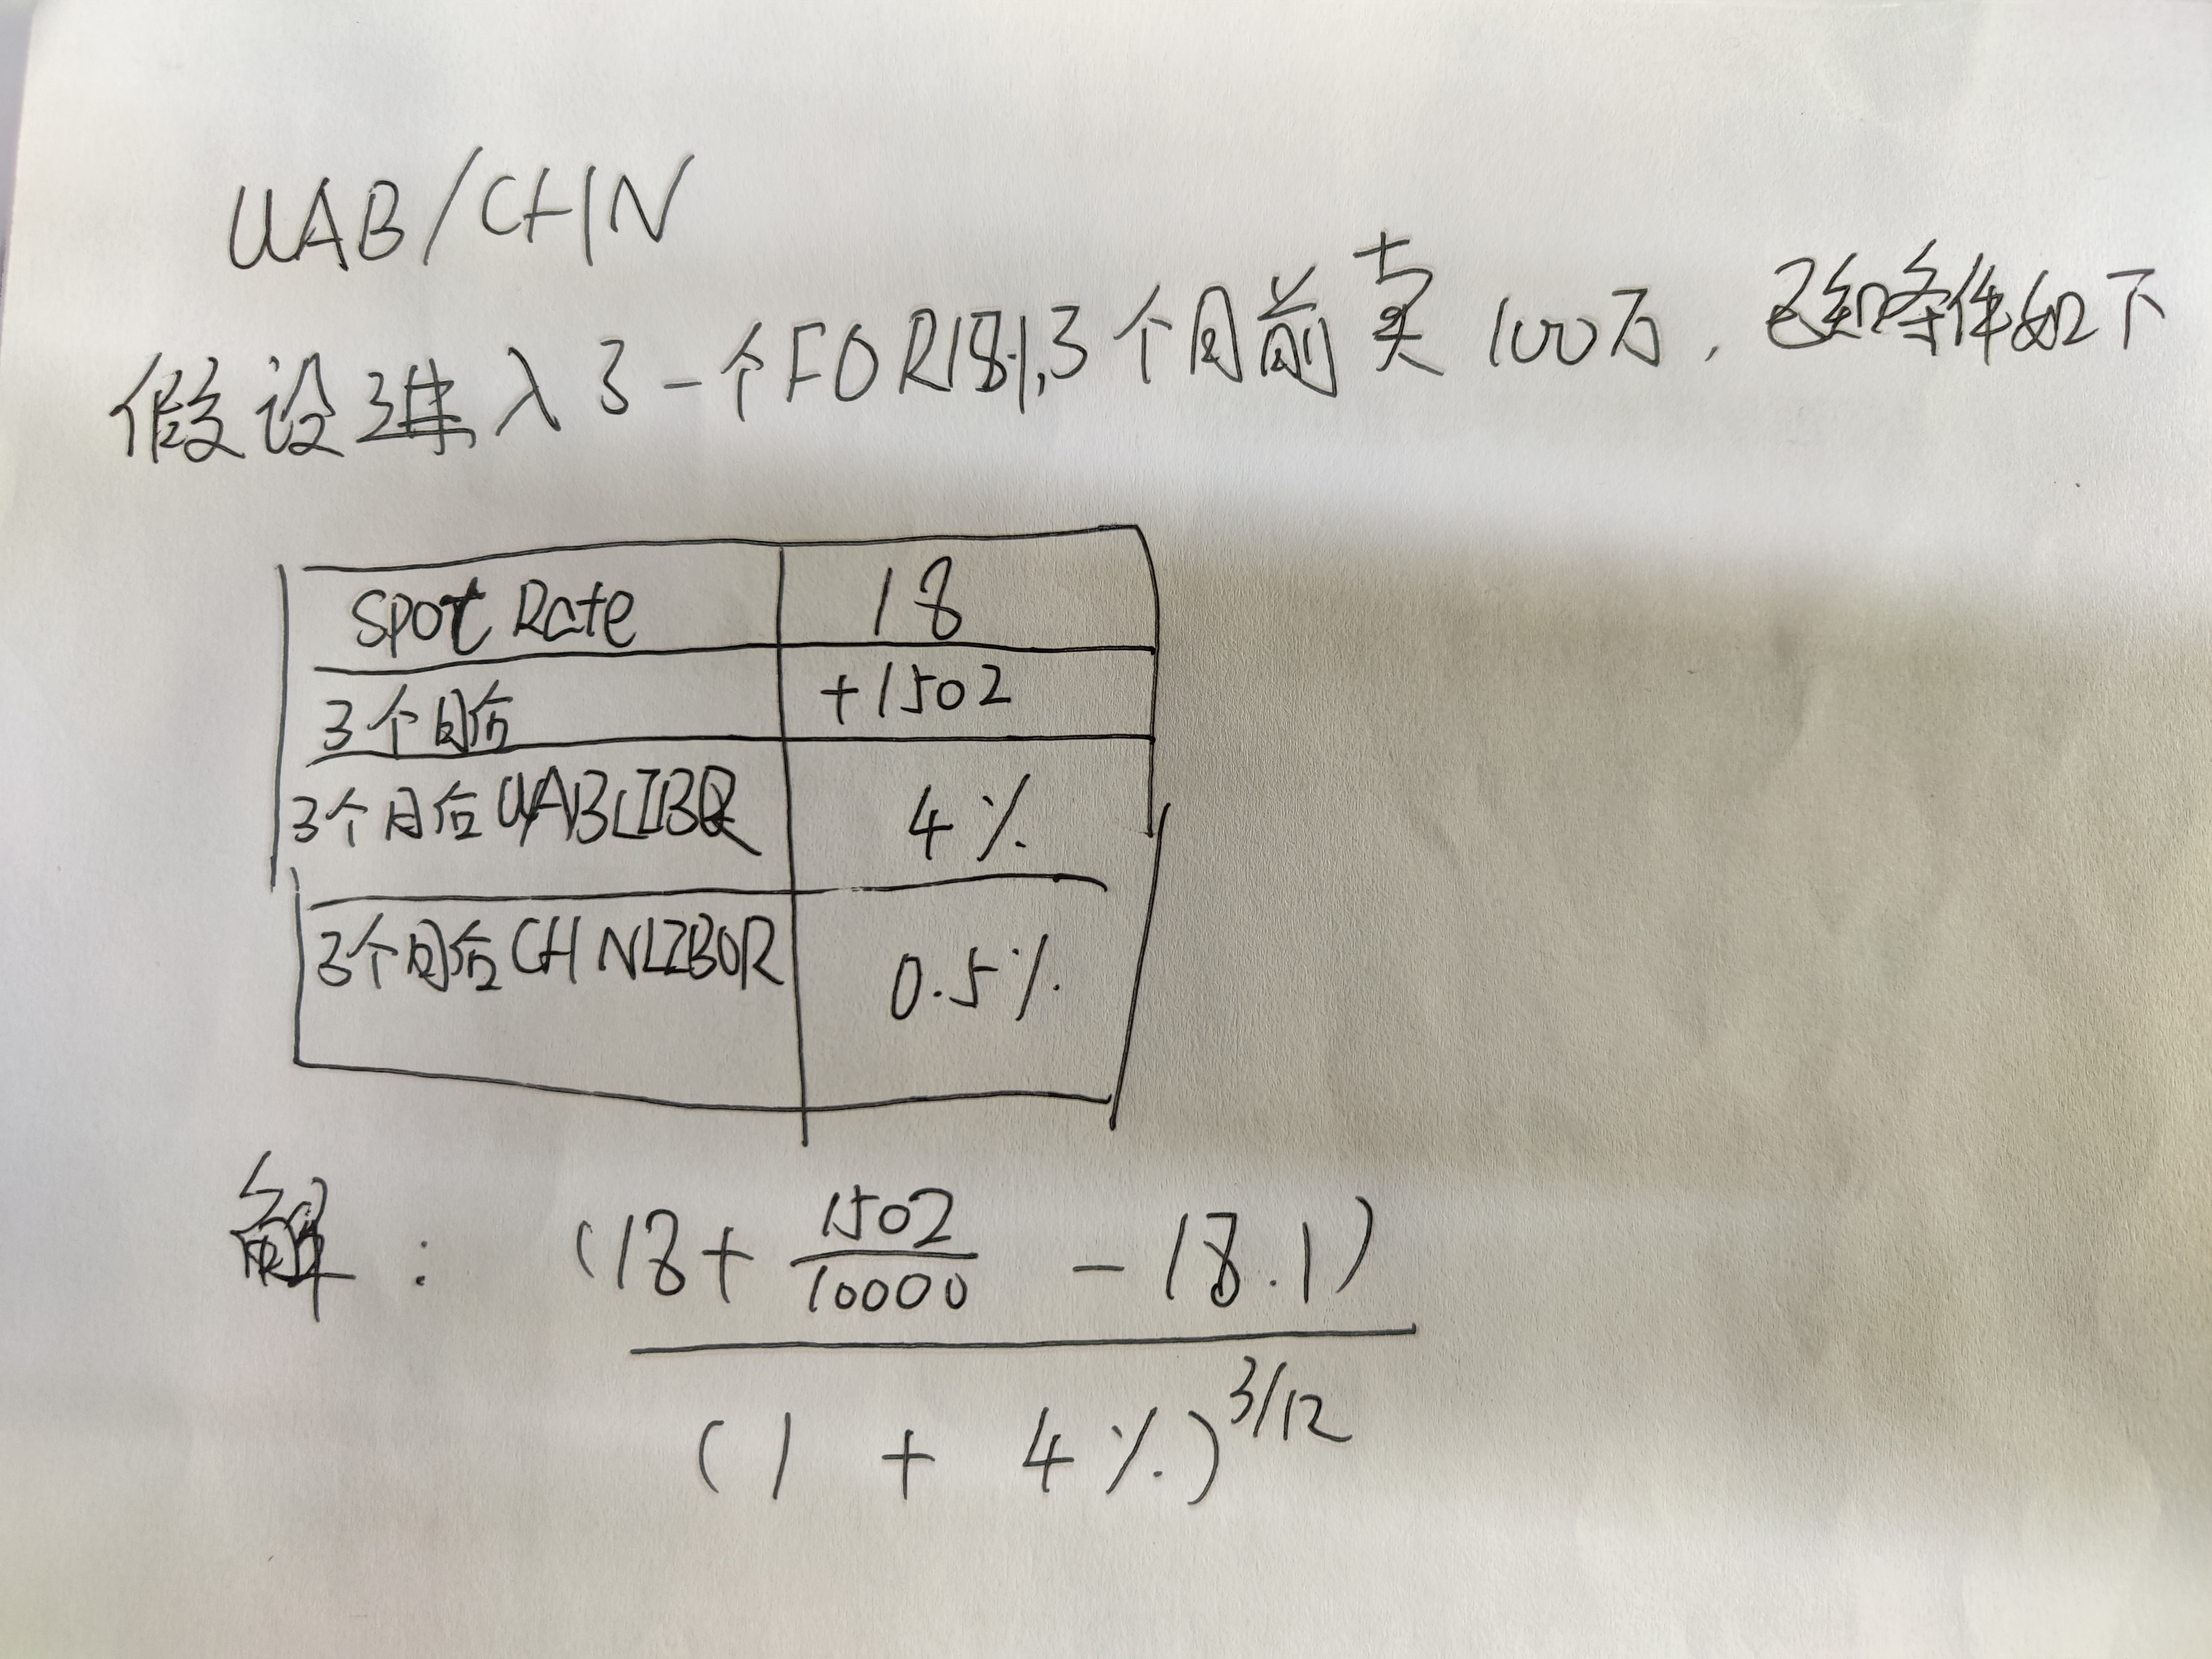 UAB/CHN
假设进入了一个FOR18.1,3个月前卖100万，已知条件如下
Spot Rate 18
3个月后 +1502
3个月后UABLIBOR 4%
3个月后CHNLIBOR 0.5%
解： (18+ 1502/10000 -18.1)
(1 + 4%)^3/12